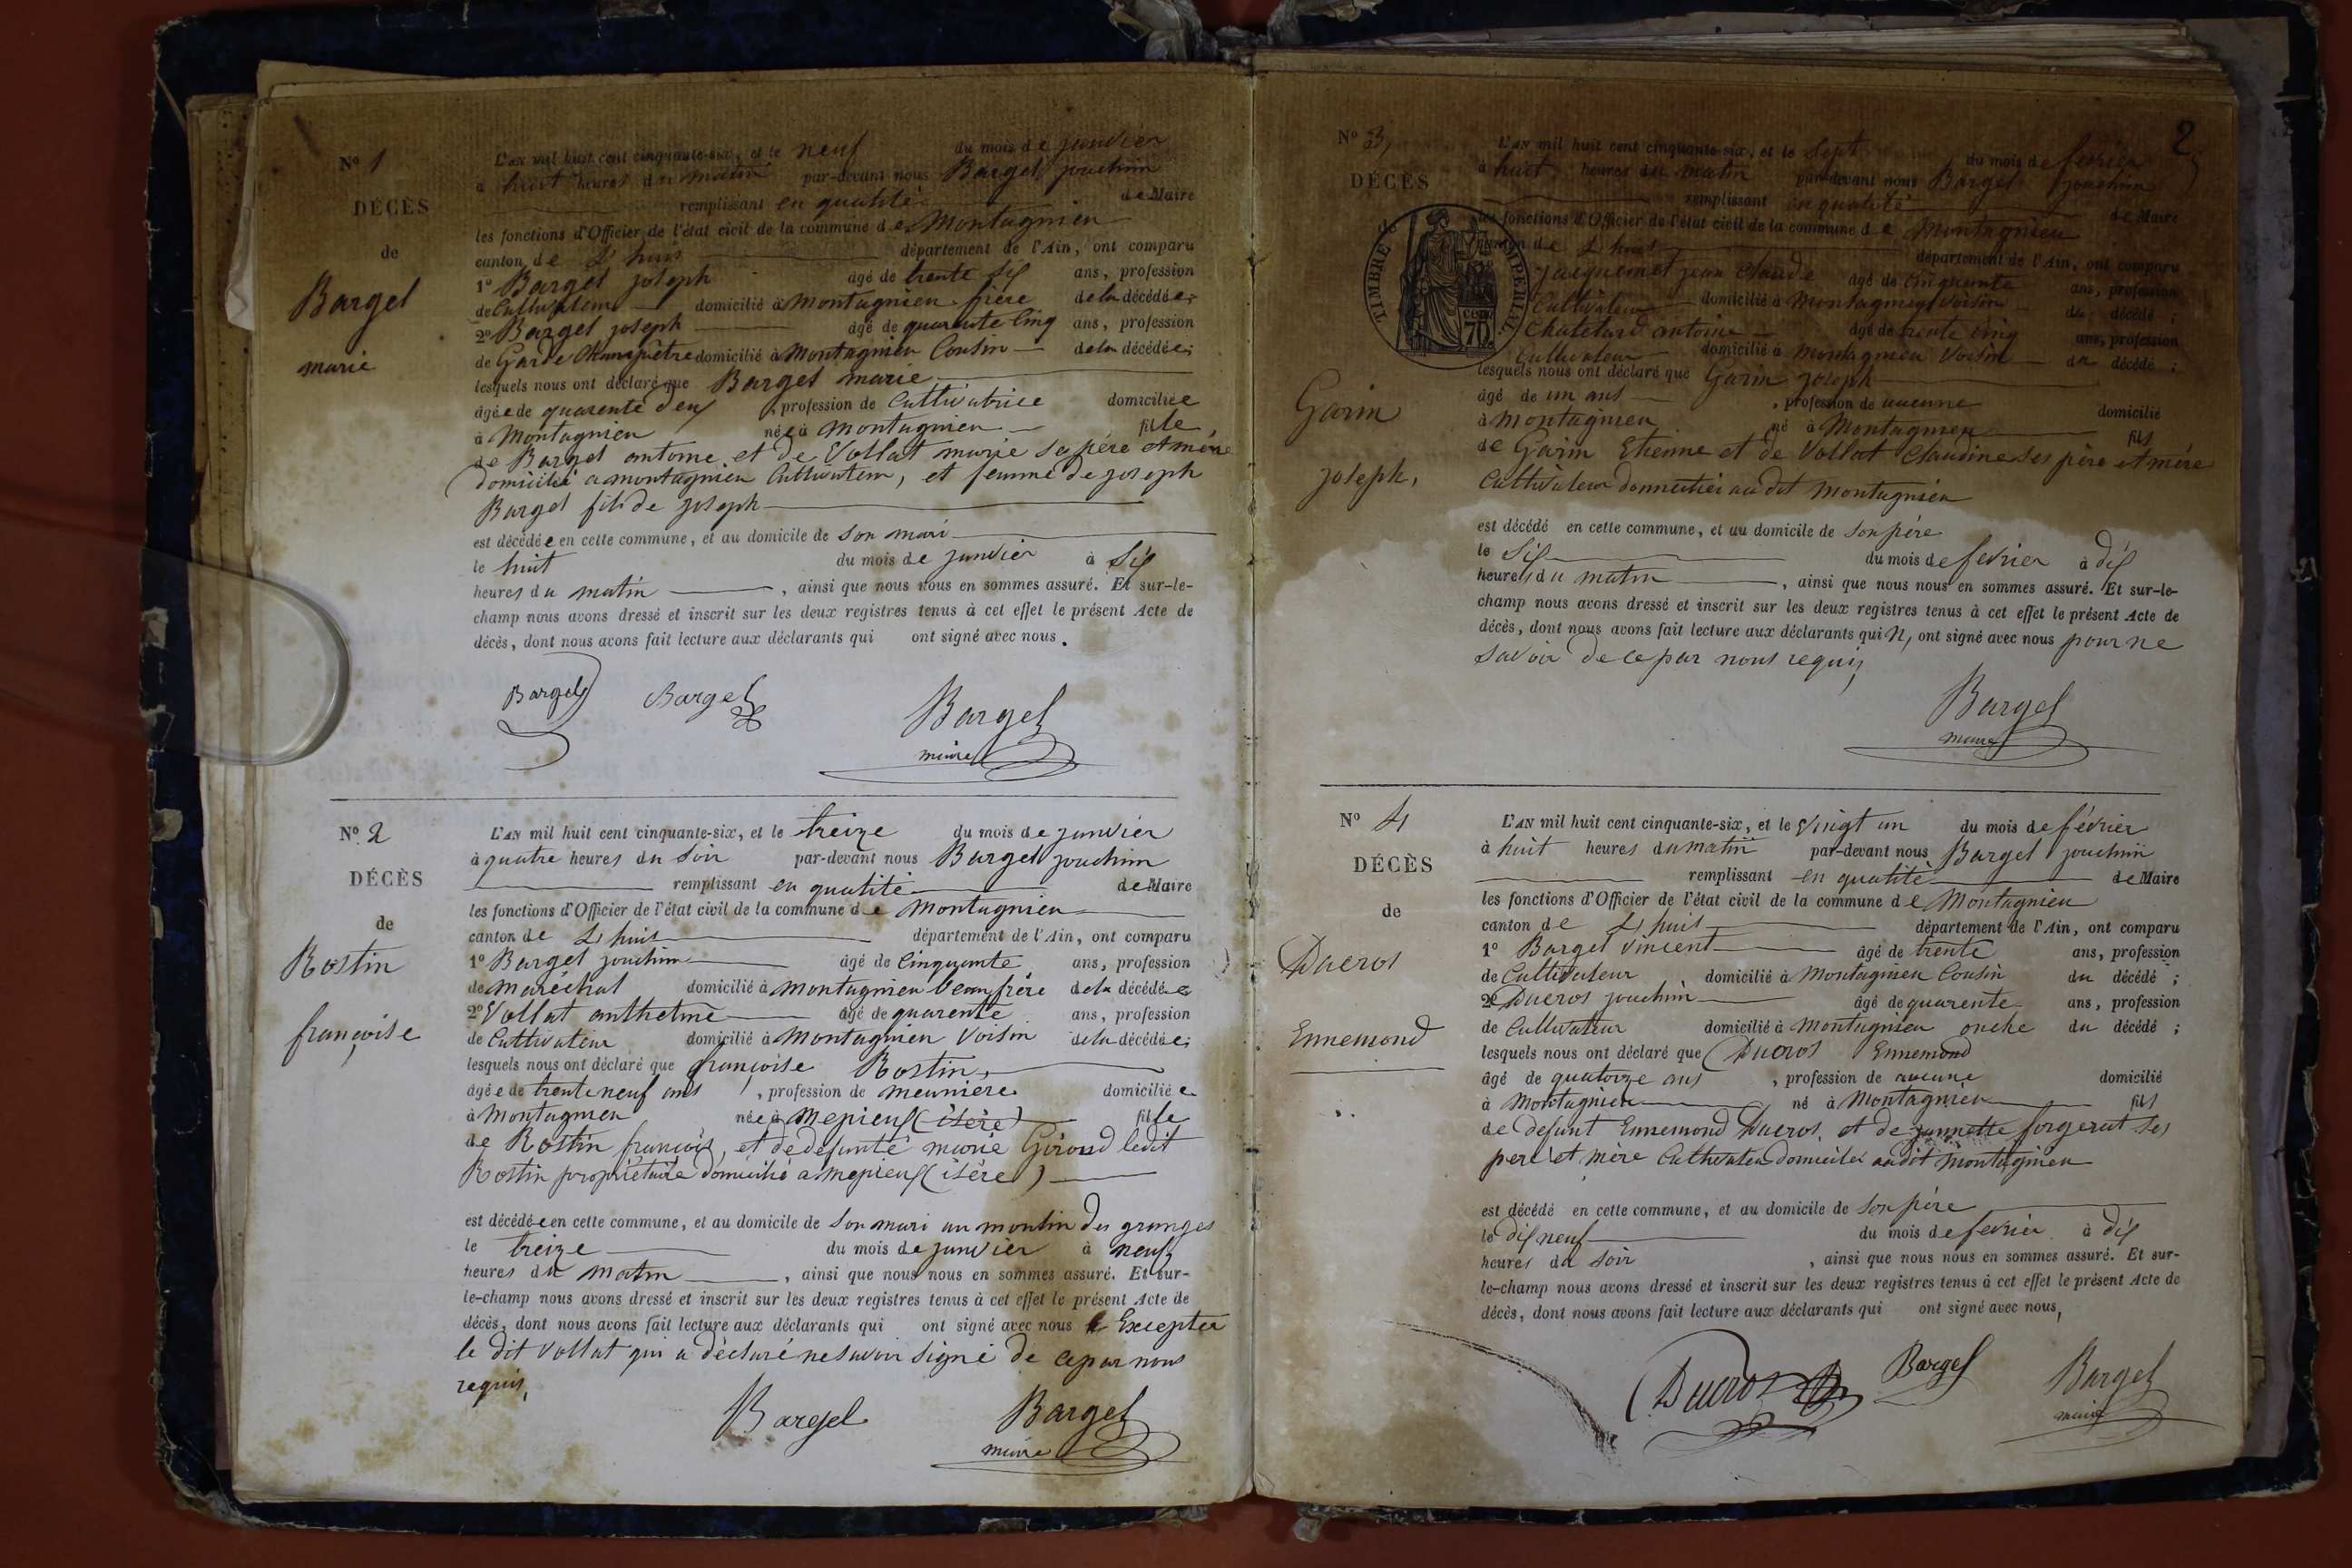 N° 1
DÉCÈS
de
Bargel
marie
L'AN mil huit cent cinquante-six, et le neuf du mois de janvier
à huit heures du matin par-devant nous Bargel jouchim
remplissant en qualité de Maire
les fonctions d'Officier de l'état civil de la commune de Montagnieu
canton de L'huis département de l'Ain, ont comparu
1° Bargel joseph âgé de trente six ans, profession
de Cultivateur domicilié à Montagnieu frère de la décédée;
2° Bargel joseph âgé de quarante Cinq ans, profession
de Garde Champêtre domicilié à Montagnieu Cousin de la décédée;
lesquels nous ont déclaré que Bargel marie
âgée de quarente deux, profession de Cultivatrice domiciliée
à Montagnieu née à Montagnieu fille
de Bargel antoine et de Vollat marie se père et mère
domicilié a montagnieu Cultivateur, et femme de joseph
Bargel fils de joseph
est décédée en cette commune, et au domicile de son mari
le huit du mois de janvier à Six
heures du matin, ainsi que nous nous en sommes assuré. Et sur-le-
champ nous avons dressé et inscrit sur les deux registres tenus à cet effet le présent Acte de
décès, dont nous avons fait lecture aux déclarants qui ont signé avec nous.
Bargel Bargel Bargel
maire
N° 2
DÉCÈS
de
Rostin
françoise
L'AN mil huit cent cinquante-six, et le treize du mois de janvier
à quatre heures du Soir par-devant nous Bargel jouchim
remplissant en qualité de Maire
les fonctions d'Officier de l'état civil de la commune de Montagnieu
canton de L'huis département de l'Ain, ont comparu
1° Bargel jouchim âgé de Cinquante ans, profession
de maréchal domicilié à Montagnieu beau frère de la décédée
2° Vollat anthelme âgé de quarente ans, profession
de Cultivateur domicilié à Montagnieu Voisin de la décédée;
lesquels nous ont déclaré que françoise Rostin,
âgée de trente neuf ans, profession de meunière domiciliée
à Montagnieu née à Mepieux (isère) fille
de Rostin françois, et de defunte marie Giroud ledit
Rostin propriétaire domicilié a mepieux (isère)
est décédée en cette commune, et au domicile de Son mari au moulin des granges
le treize du mois de janvier à neuf
heures du matin, ainsi que nous nous en sommes assuré. Et sur-
le-champ nous avons dressé et inscrit sur les deux registres tenus à cet effet le présent Acte de
décès, dont nous avons fait lecture aux déclarants qui ont signé avec nous Excepter
le dit Vollat qui a déclaré ne savoir signé de ce par nous
requis,
Bargel Bargel
maire
2
N° 3,
DÉCÈS
de
Garin
joseph,
TIMBRE IMPERIAL
L'AN mil huit cent cinquante-six, et le Sept du mois de fevrier
à huit heures du matin par-devant nous Bargel jouchim
remplissant en qualité de Maire
les fonctions d'Officier de l'état civil de la commune de Montagnieu
canton de L'huis département de l'Ain, ont comparu
Jacquemet jean Claude âgé de Cinquente ans, profession
Cultivateur domicilié à Montagnieu Voisin du décédé;
Chatelard antoine âgé de trente cinq ans, profession
Cultivateur domicilié à Montagnieu Voisin du décédé;
lesquels nous ont déclaré que Garin joseph
âgé de un ans, profession de aucunne domicilié
à Montagnieu né à Montagnieu fils
de Garin Etienne et de Vollat Claudine Ses père et mère
Cultivateur domicilié au dit Montagnieu
est décédé en cette commune, et au domicile de Son père
le Six du mois de fevrier à dix
heures du matin, ainsi que nous nous en sommes assuré. Et sur-le-
champ nous avons dressé et inscrit sur les deux registres tenus à cet effet le présent Acte de
décès, dont nous avons fait lecture aux déclarants qui n, ont signé avec nous pour ne
savoir de ce par nous requis,
Bargel
maire
N° 4
DÉCÈS
de
Ducros
Ennemond
L'AN mil huit cent cinquante-six, et le Vingt un du mois de février
à huit heures du matin par-devant nous Bargel jouchim
remplissant en qualité de Maire
les fonctions d'Officier de l'état civil de la commune de Montagnieu
canton de L'huis département de l'Ain, ont comparu
1° Bargel Vincent âgé de trente ans, profession
de Cultivateur domicilié à Montagnieu Cousin du décédé;
2° Ducros jouchim âgé de quarente ans, profession
de Cultivateur domicilié à Montagnieu oncle du décédé;
lesquels nous ont déclaré que Ducros Ennemond
âgé de quatorze ans, profession de aucune domicilié
à Montagnieu né à Montagnieu fils
de defunt Ennemond Ducros, et de jannette forgerat Ses
pere et mère Cultivateur domicilié au dit Montagnieu
est décédé en cette commune, et au domicile de Son père
le dix neuf du mois de fevrier à dix
heures du Soir, ainsi que nous nous en sommes assuré. Et sur-
le-champ nous avons dressé et inscrit sur les deux registres tenus à cet effet le présent Acte de
décès, dont nous avons fait lecture aux déclarants qui ont signé avec nous,
Ducros Bargel Bargel
maire